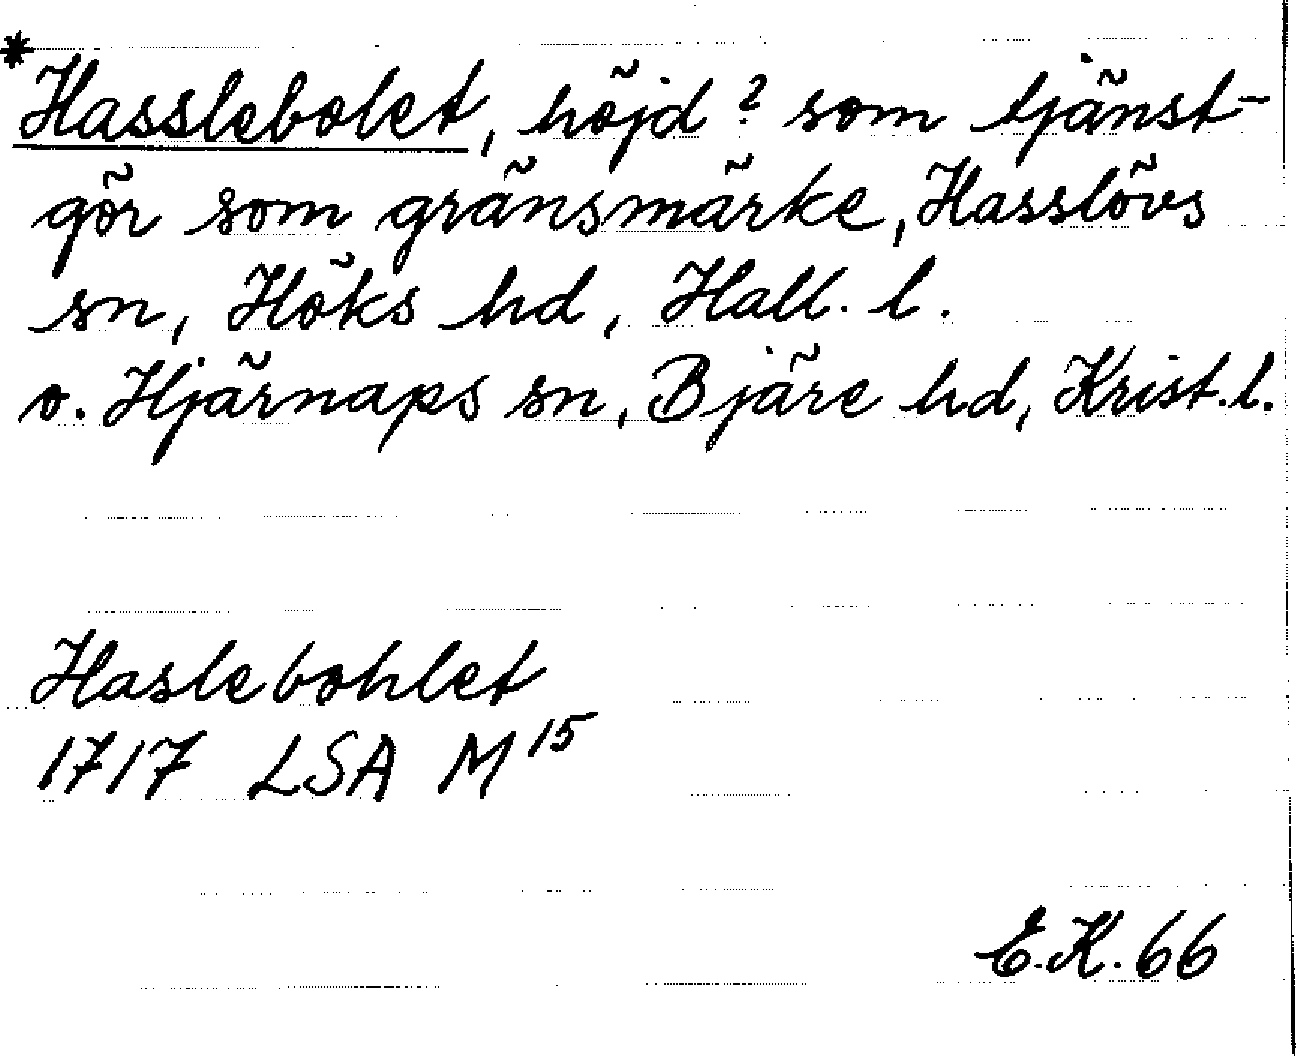 *Hasslebolet, höjd? som tjänst-
gör som gränsmärke, Hasslövs
sn, Höks hd, Hall. l.
o. Hjärnaps sn, Bjäre hd, Krist. l.
Haslebohlet
1717 LSA M15
E.K. 66